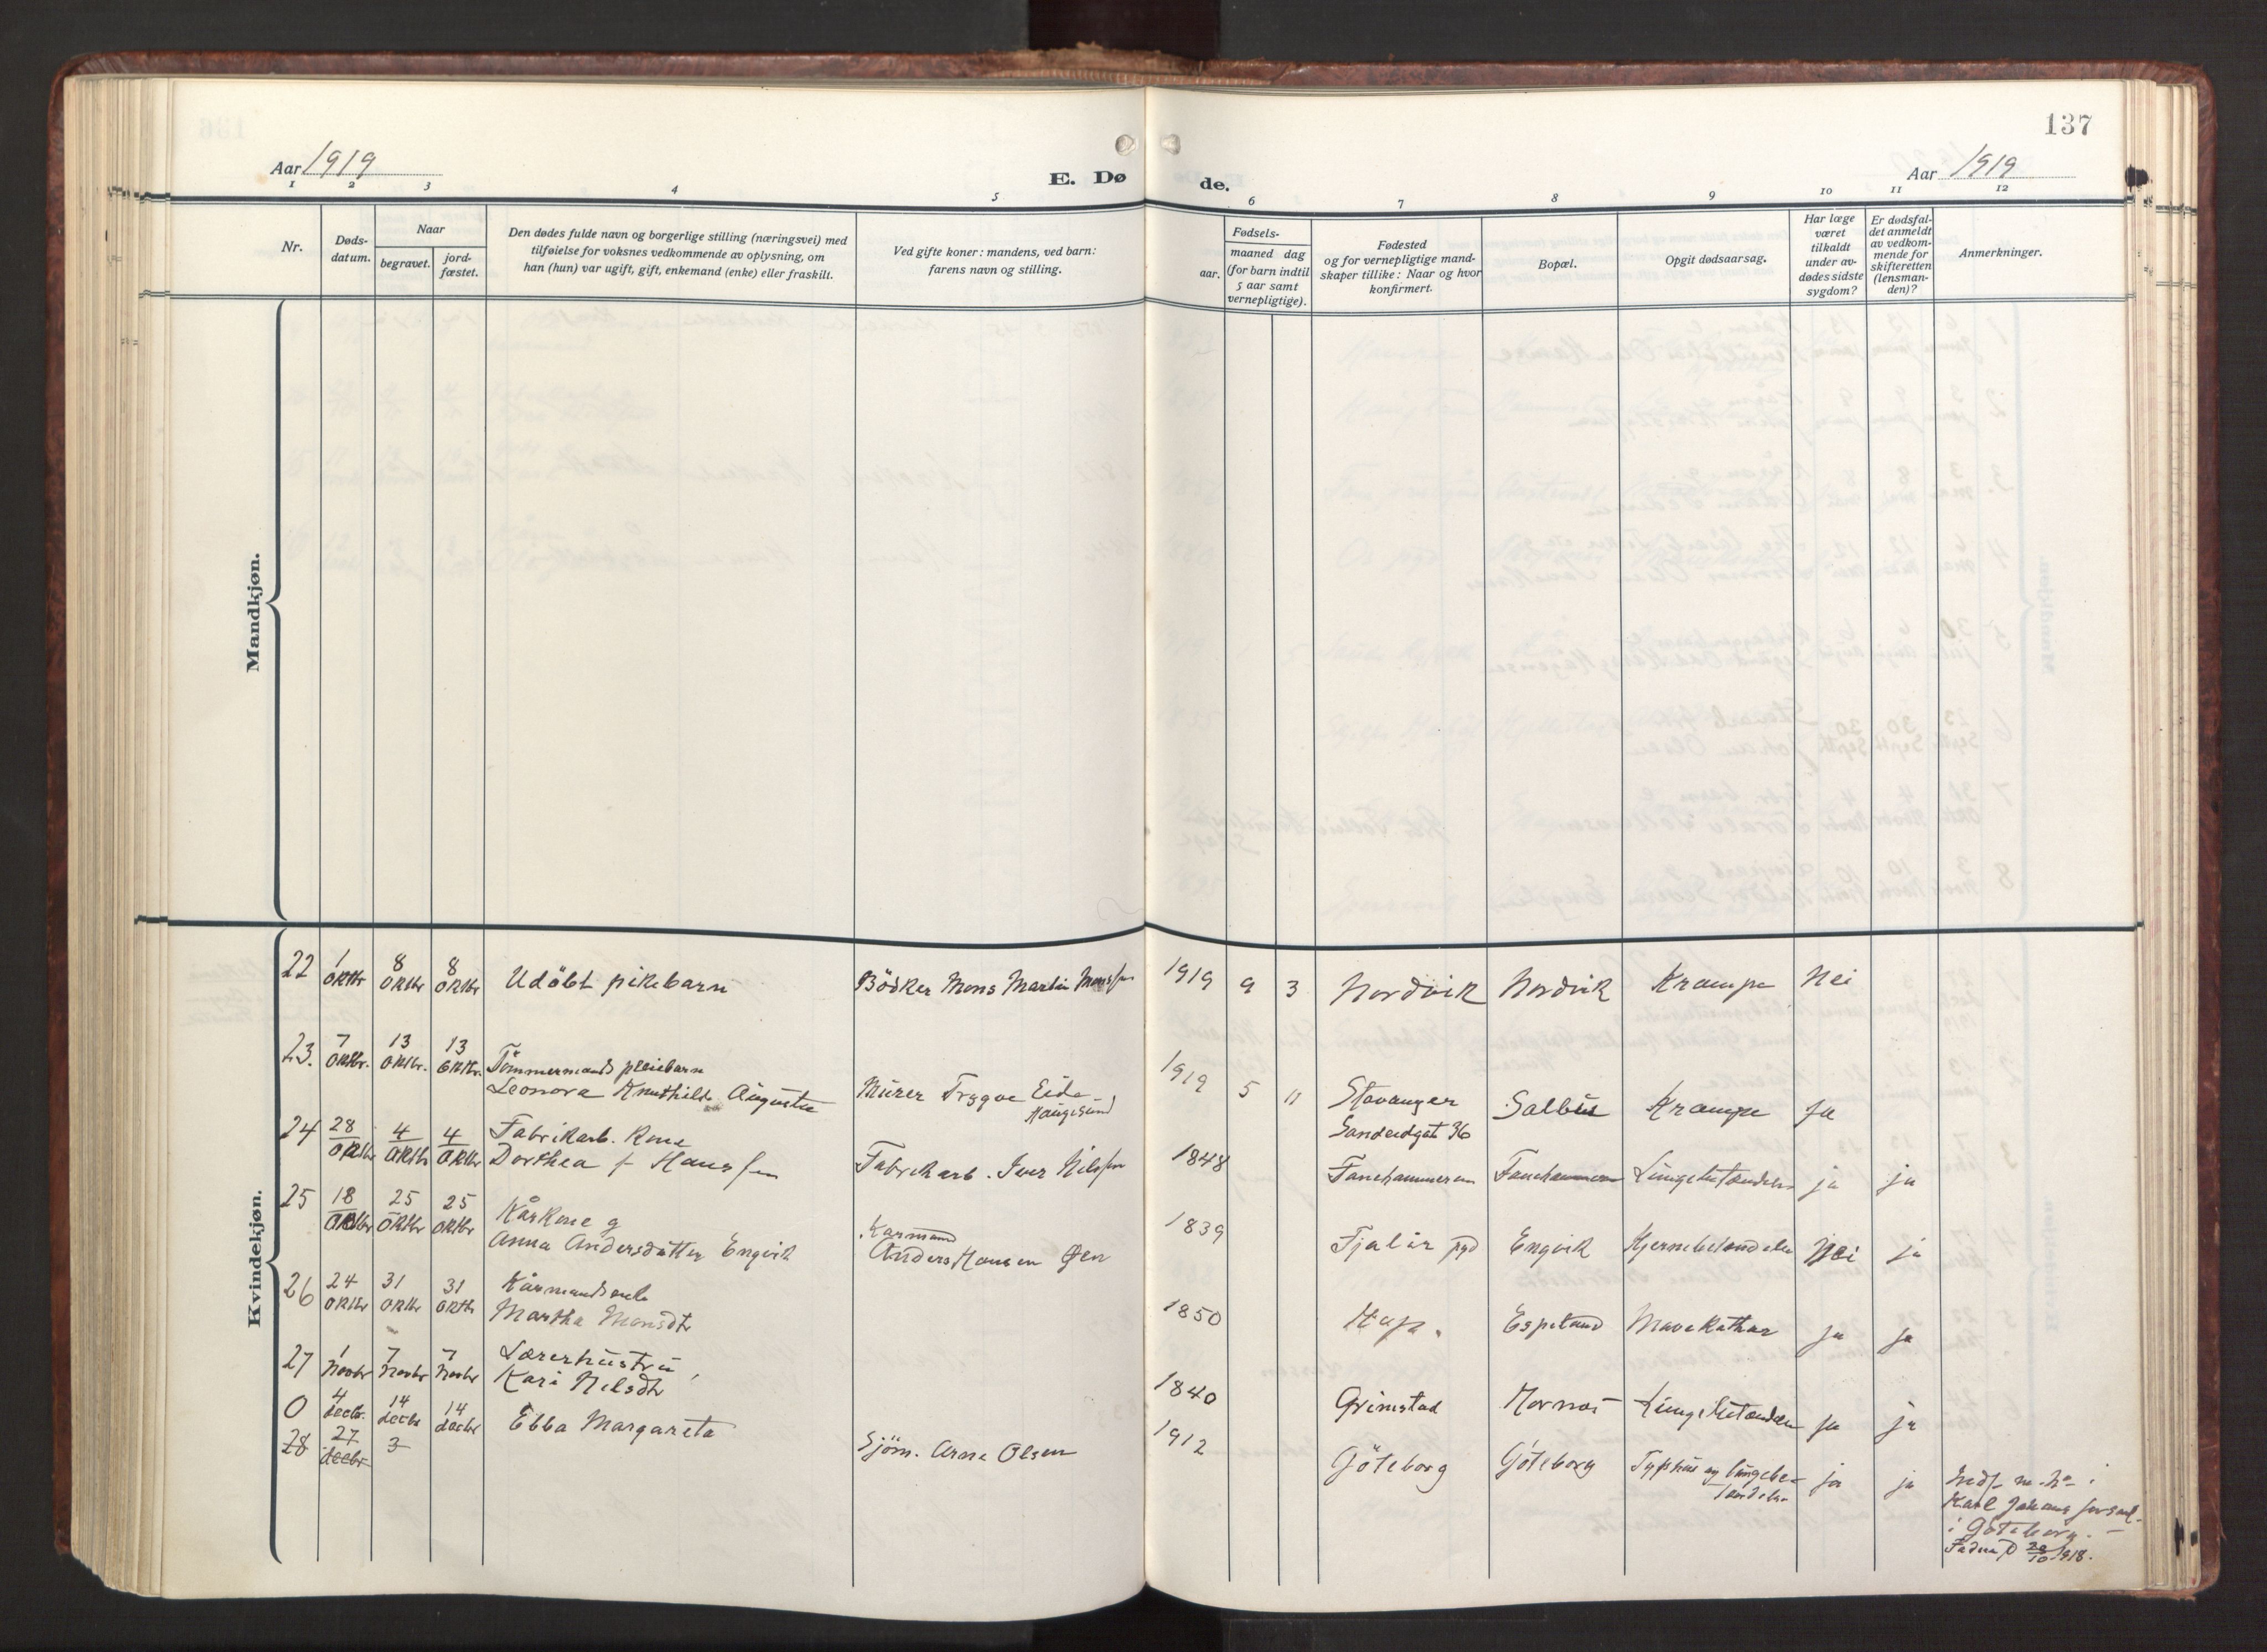 137
Aar 1919
E. Dø
de.
Aar 1919
1 2 3 4 5 6 7 8 9 10 11 12
Nr.
Døds-
datum.
Naar
begravet.
jord-
fæstet.
Den dødes fulde navn og borgerlige stilling (næringsvei) med
tilføielse for voksnes vedkommende av oplysning, om
han (hun) var ugift, gift, enkemand (enke) eller fraskilt.
Ved gifte koner: mandens, ved barn:
farens navn og stilling.
Fødsels-
aar.
maaned dag
(for barn indtil
5 aar samt
vernepligtige).
Fødested
og for vernepligtige mand-
skaper tillike: Naar og hvor
konfirmert.
Bopæl.
Opgit dødsaarsag.
Har læge
været
tilkaldt
under av-
dødes sidste
sygdom?
Er dødsfal-
det anmeldt
av vedkom-
mende for
skifteretten
(lensman-
den)?
Anmerkninger.
Mandkjøn.
Kvindekjøn.
22 1 oktbr 8 oktbr 8 oktbr Udöbt pikebarn Bödker Mons Martin Monssen 1919 9 3 Nordvik Nordvik Krampe Nei
23. 7 oktbr. 13 oktbr. 13 oktbr. Tömmermands pleiebarn
Leonora Knuthilde Augusta Murer Trygve Eide 1919 5 11 Stavanger Salbu Krampe Ja
Haugesund Sandeidgat 36
24 28 oktbr 4 oktbr 4 oktbr Fabrikarb. kone
Dorthea f Hanssen Fabrikarb. Iver Nilssen 1848 Fanehammeren Fanehammeren Lungebetændelse ja ja
25 18 oktbr 25 oktbr 25 oktbr Kårkone g
Anna Andersdatter Engvik Karmand
Anders Hansen Øen 1839 Fjalir pgd Engvik Hjernebetændelse Nei ja
26 24 oktbr 31 oktbr 31 oktbr Kårmandsenke
Martha Monsdtr 1850 Espeland Mavekathar ja ja
27 1 Novbr 7 Novbr 7 Novbr Lærerhustru
Kari Nilsdtr 1840 Grimstad Mornes Lungebetændelse ja ja
0 4 decbr. 14 decbr 14 decbr Ebba Margareta Sjöm. Arne Olsen 1912 Göteborg Göteborg Typhus og lungebe-
tændelse ja ja
28 27 decbr 3
Karl Johans forsaml.
i Göteborg. –
28/10 1918.